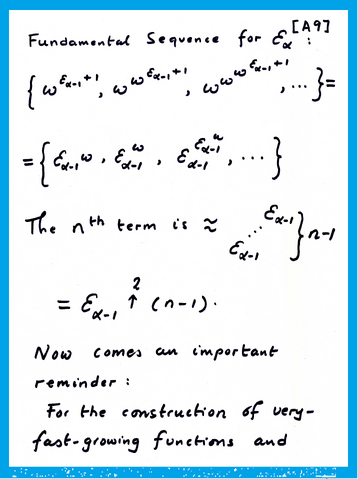 Fundamental Sequence for ε_α [A9] :
{ ω^{ε_{α-1}+1}, ω^{ω^{ε_{α-1}+1}}, ω^{ω^{ω^{ε_{α-1}+1}}}, ... } =
= { ε_{α-1}^ω, ε_{α-1}^{ε_{α-1}^ω}, ... }
The nth term is ≈ ε_{α-1}^{⋰^{ε_{α-1}}} } n-1
= ε_{α-1} ↑² (n-1).
Now comes an important
reminder :
For the construction of very-
fast-growing functions and